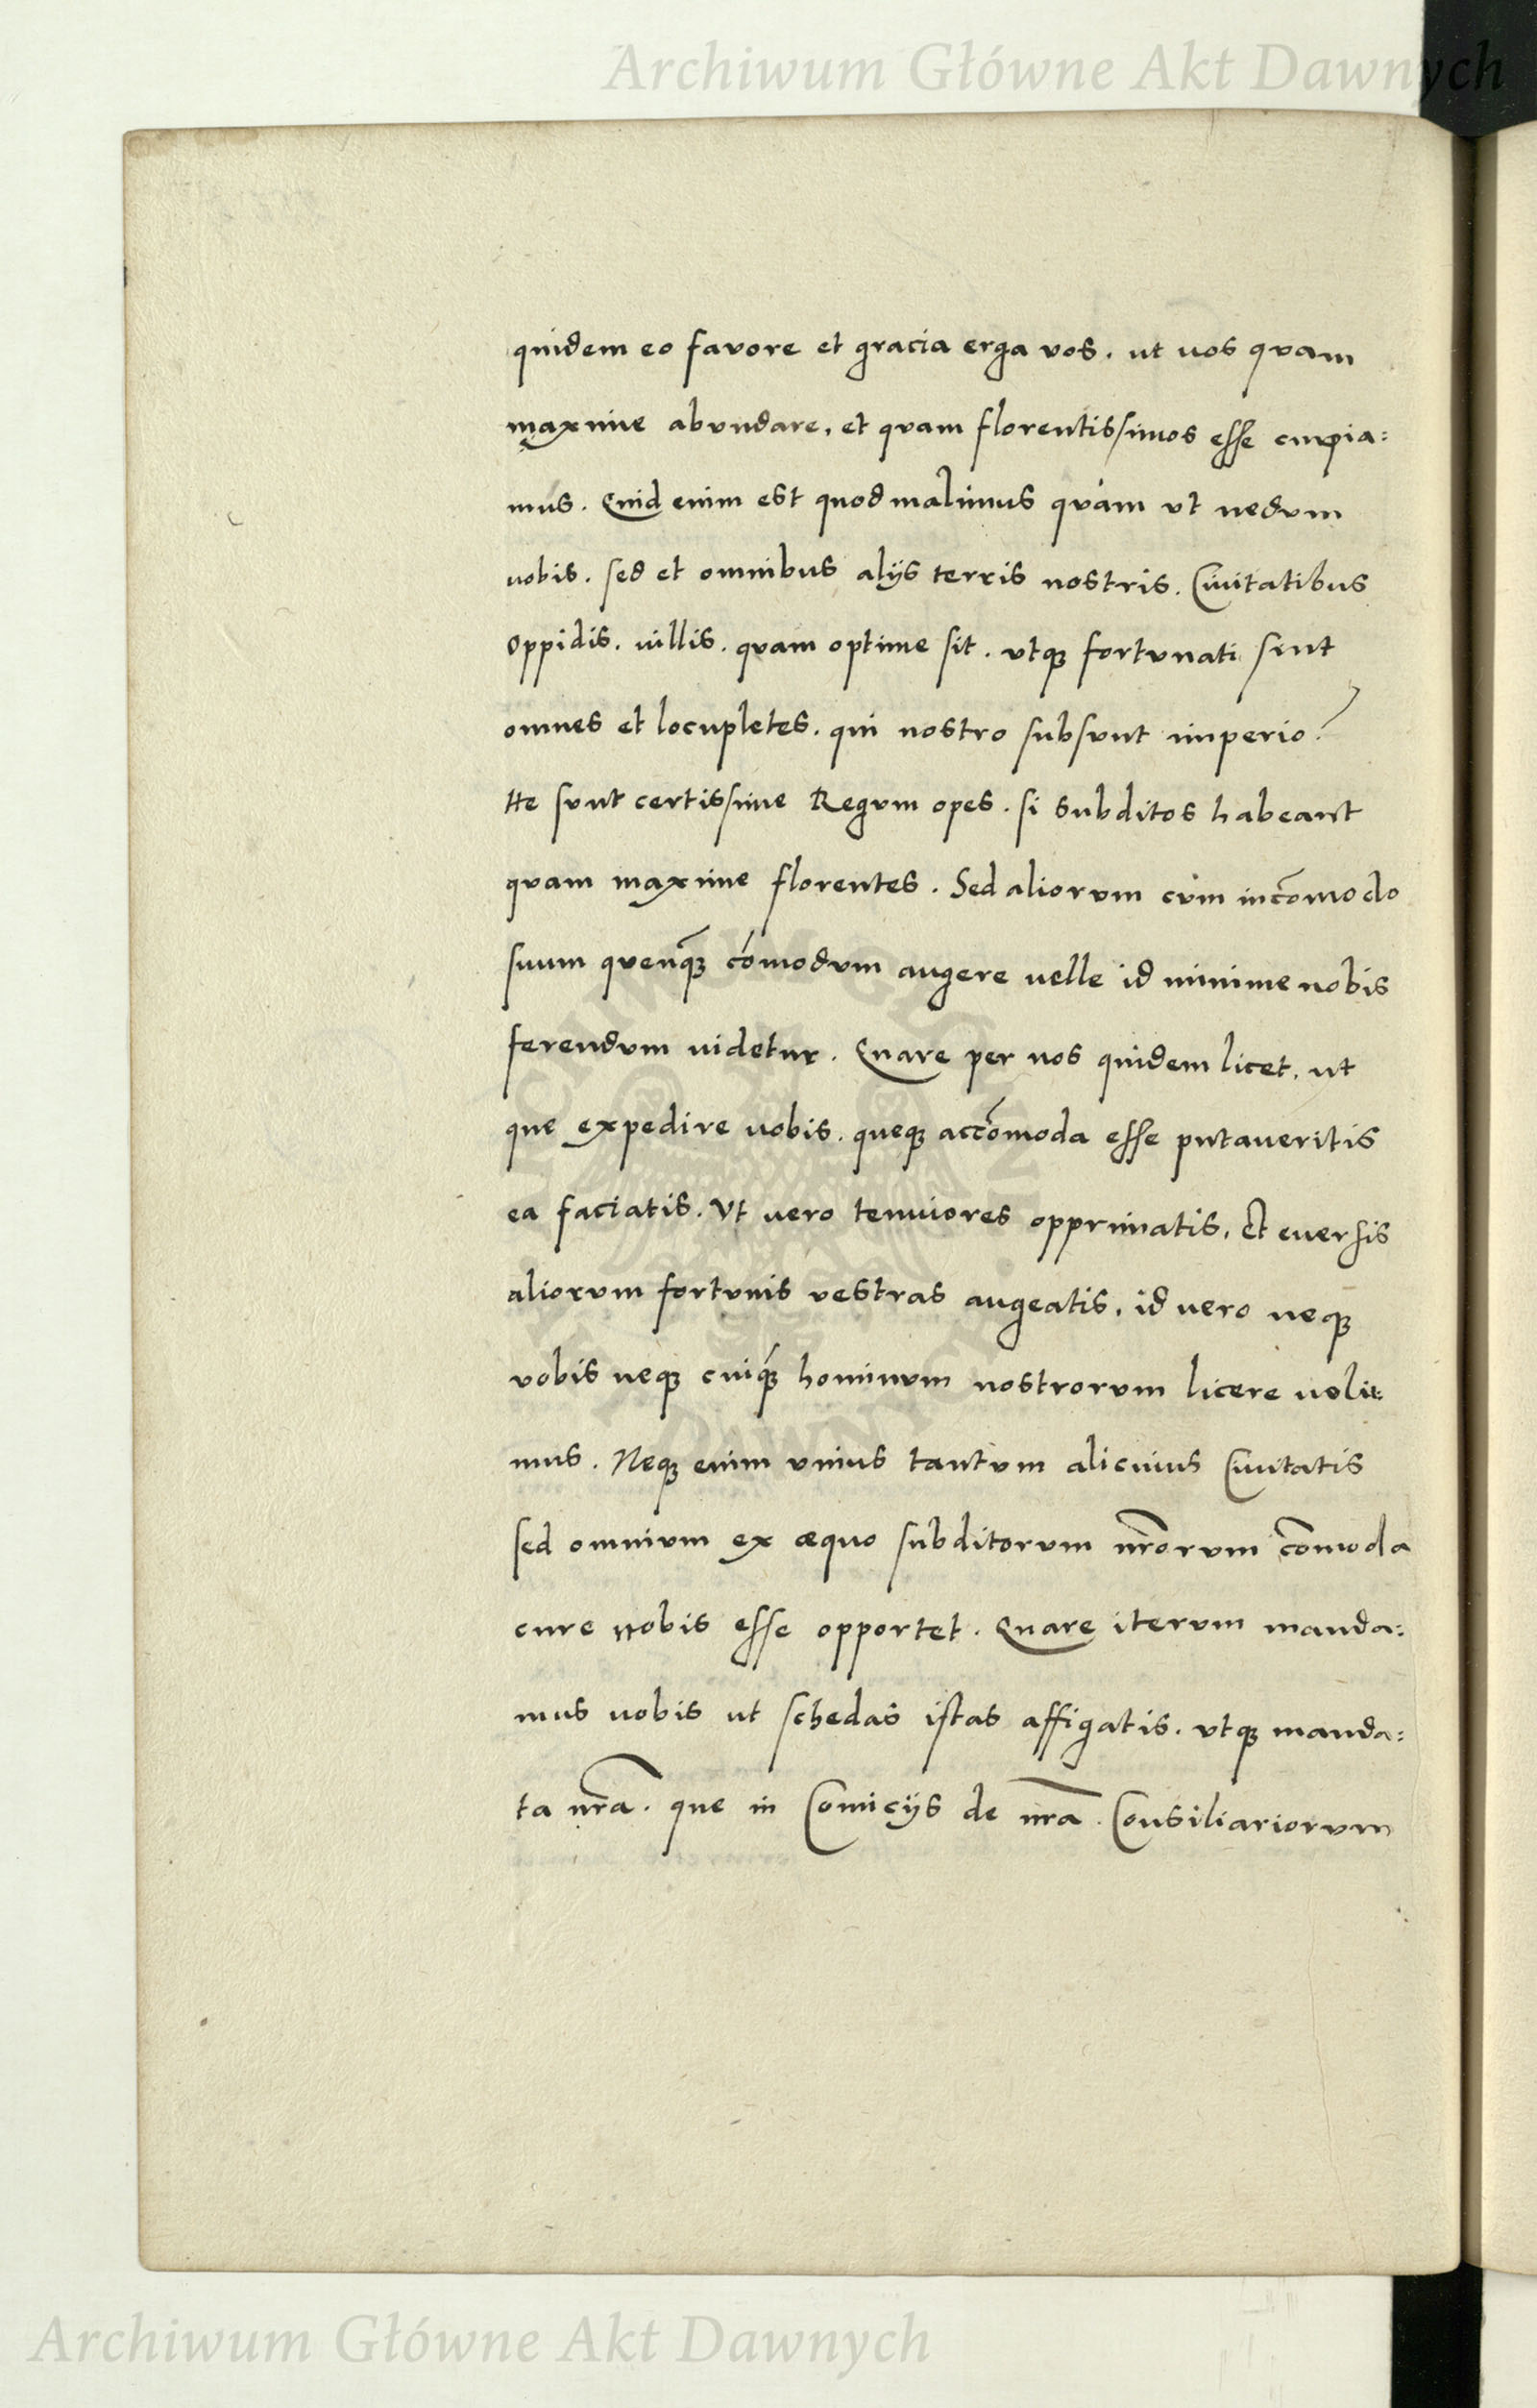 Archiwum Główne Akt Dawnych
quidem eo favore et gracia erga vos. ut uos qvam
maxime abvndare, et qvam florentissimos esse cupia:
mus. Quid enim est quod malimus qvàm vt nedvm
uobis. sed et omnibus alijs terris nostris. Ciuitatibus
Oppidis. uillis. qvam optime sit. vtqȝ fortvnati sint
omnes et locupletes. qui nostro subsvnt imperio?
He svnt certissime Regvm opes. si subditos habeant
qvam maxime florentes. Sed aliorvm cvm incōmodo
suum qvenqȝ cōmodvm augere uelle id minime nobis
ferendvm uidetur. Quare per nos quidem licet. ut
que expedire uobis. queqȝ accōmoda esse putaveritis
ea faciatis. Vt uero tenuiores opprimatis. Et euersis
aliorvm fortvnis vestras augeatis. id uero neqȝ
vobis neqȝ cuiqȝ hominvm nostrorvm licere uolu:
mus. Neqȝ enim vnius tantvm alicuius Ciuitatis
sed omnivm ex æquo subditorvm nr̃orvm cōmoda
cure nobis esse opportet. Quare itervm manda:
mus uobis ut schedas istas affigatis. vtqȝ manda:
ta nr̃a. que in Comicijs de nr̃a. Consiliariorvm
Archiwum Główne Akt Dawnych